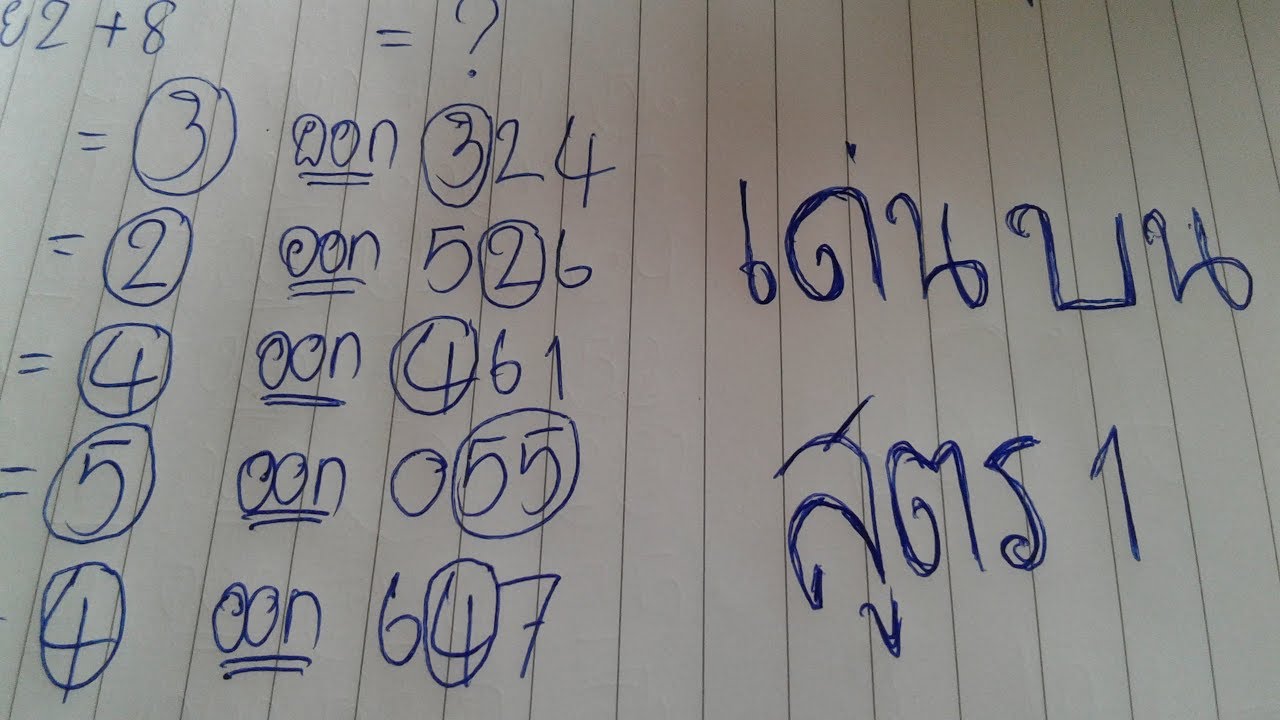 2 + 8 = ?
= 3 ออก 324
= 2 ออก 526
= 4 ออก 461
= 5 ออก 055
4 ออก 647
เด่นบน
สูตร 1